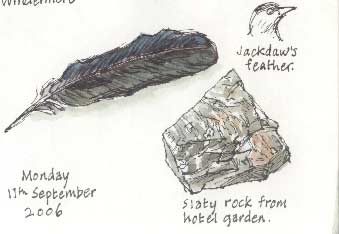 Windermere
Jackdaw's
feather.
Monday
11th September
2006
Slaty rock from
hotel garden.